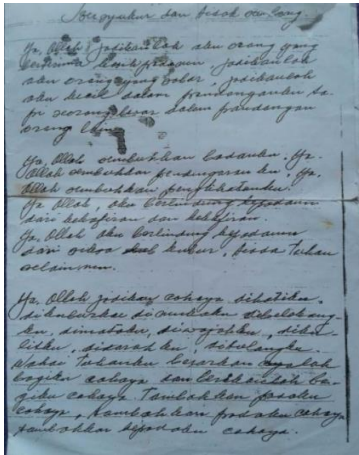 bersyukur dan besok ber lang.
Ya, Ollah jadikanlah aku orang yang
berterima kasih jadikanlah
aku orang yang sabar jadikanlah
aku kecil dalam pandanganku ta-
pi seorang besar dalam pandangan
orang lain.
Ya, Ollah sembuhkan badanku. Ya.
Ollah sembuhkan pendengaranku, Ya,
Ollah sembuhkan penglihatanku.
Ya Ollah, aku berlindung kepadamu
dari kekafiran dan kekafiran.
Ya, Ollah aku berlindung kepadamu
dari siksa kubur, tiada Tuhan
selain, mu.
Ya, Ollah jadikan cahaya dihatiku.
dikuburku dimukaku dibelakang-
ku, dimataku, diwajahku, diku-
litku, didarahku, ditulangku.
Wahai Tuhanku besarkanlah
bagiku cahaya dan berikanlah ba-
giku cahaya. Tambahkan padaku
cahaya, tambahkan padaku cahaya
tambahkan kepadaku cahaya.